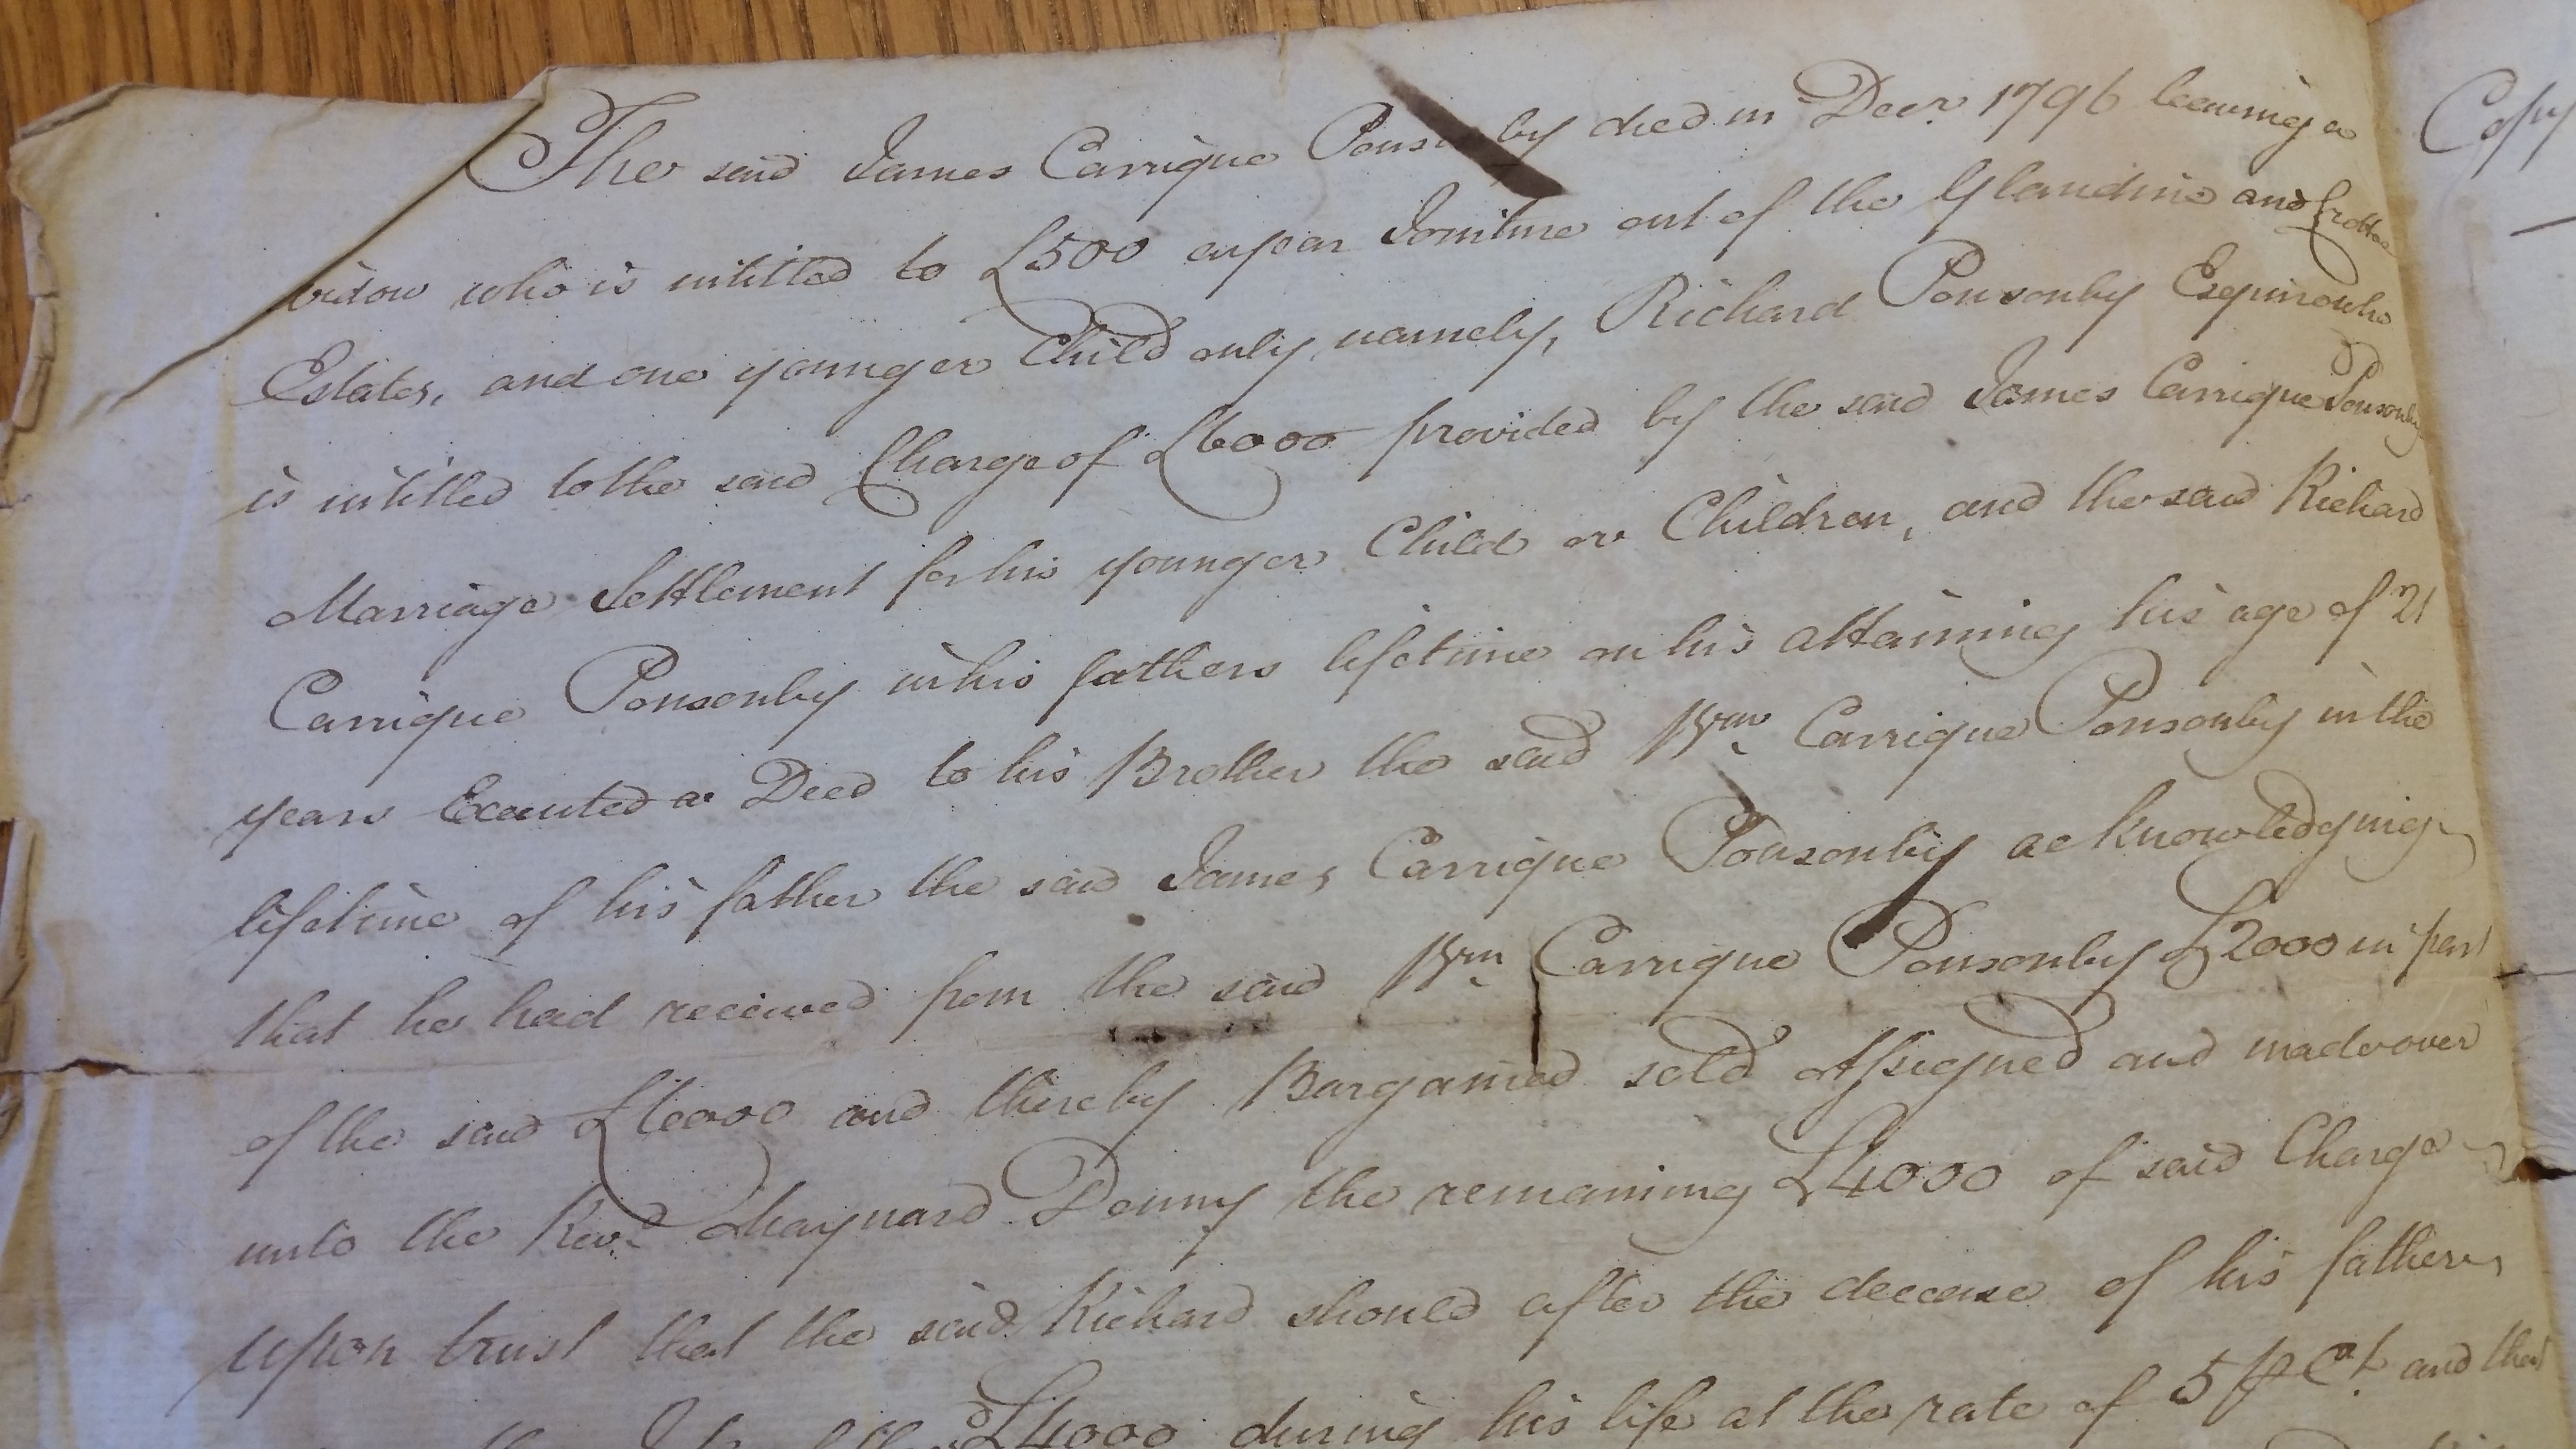 The said James Carrique Ponsonby died in Decr. 1796 leaving a
widow who is intitled to £500 a year Jointure out of the Glandine and Crotto
Estates, and one younger Child only, namely, Richard Ponsonby Esquire who
is intitled to the said Charge of £6000 provided by the said James Carrique Ponsonby
Marriage Settlement for his younger Child or Children, and the said Richard
Carrique Ponsonby in his fathers lifetime on his attaining his age of 21
years Executed a Deed to his Brother the said Wm. Carrique Ponsonby in the
lifetime of his father the said James Carrique Ponsonby acknowledging
that he had received from the said Wm. Carrique Ponsonby £2000 in part
of the said £6000 and thereby Bargained sold Assigned and made over
unto the Revd. Maynard Denny the remaining £4000 of said Charge
upon trust that the said Richard should after the decease of his father
£4000 during his life at the rate of 5 P Ct. and that
Copy